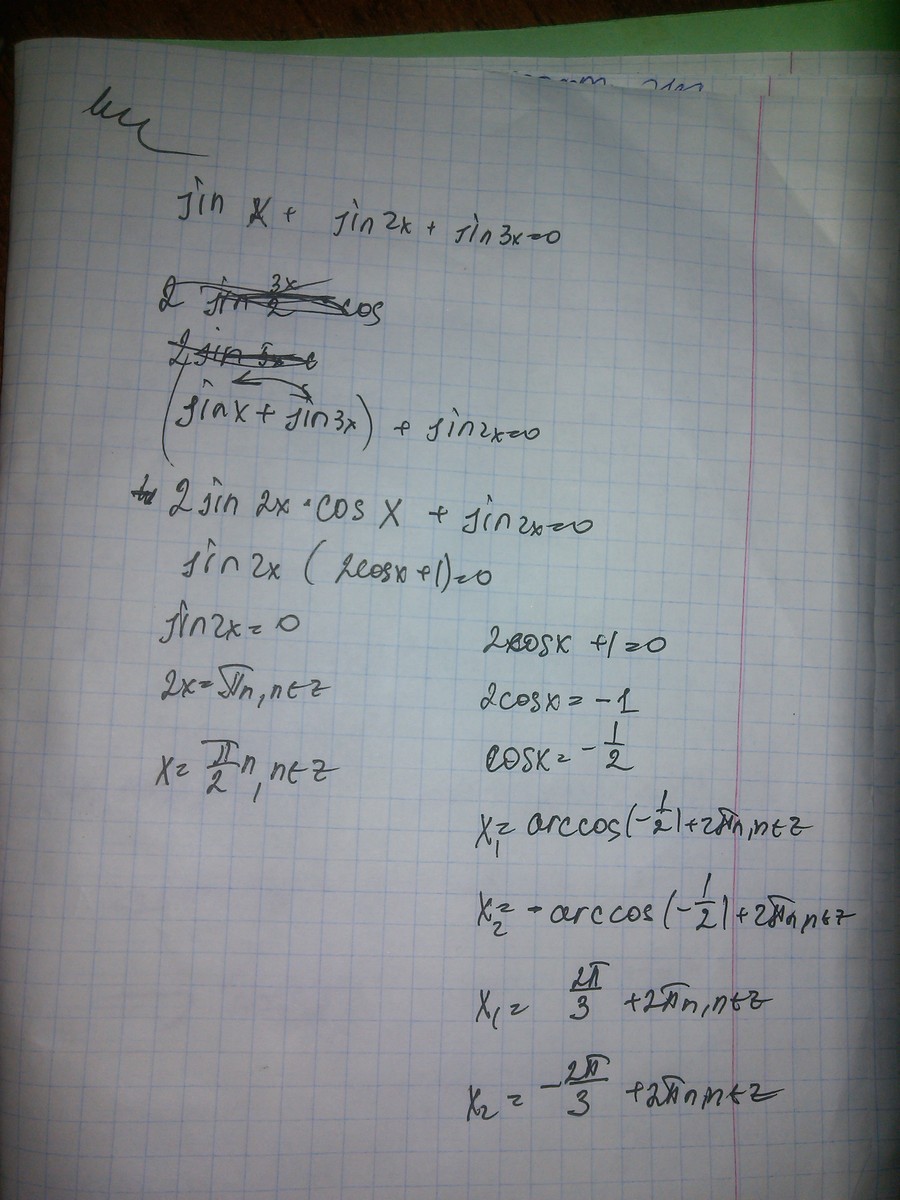 sin x + sin 2x + sin 3x = 0
2 sin 3x/2 cos
2 sin
(sin x + sin 3x) + sin 2x = 0
2 sin 2x · cos x + sin 2x = 0
sin 2x (2cosx + 1) = 0
sin 2x = 0
2x = πn, n ∈ z
x = π/2 n, n ∈ z
2cosx + 1 = 0
2cosx = -1
cosx = -1/2
x₁ = arccos(-1/2) + 2πn, n ∈ z
x₂ = -arccos(-1/2) + 2πn, n ∈ z
x₁ = 2π/3 + 2πn, n ∈ z
x₂ = -2π/3 + 2πn, n ∈ z